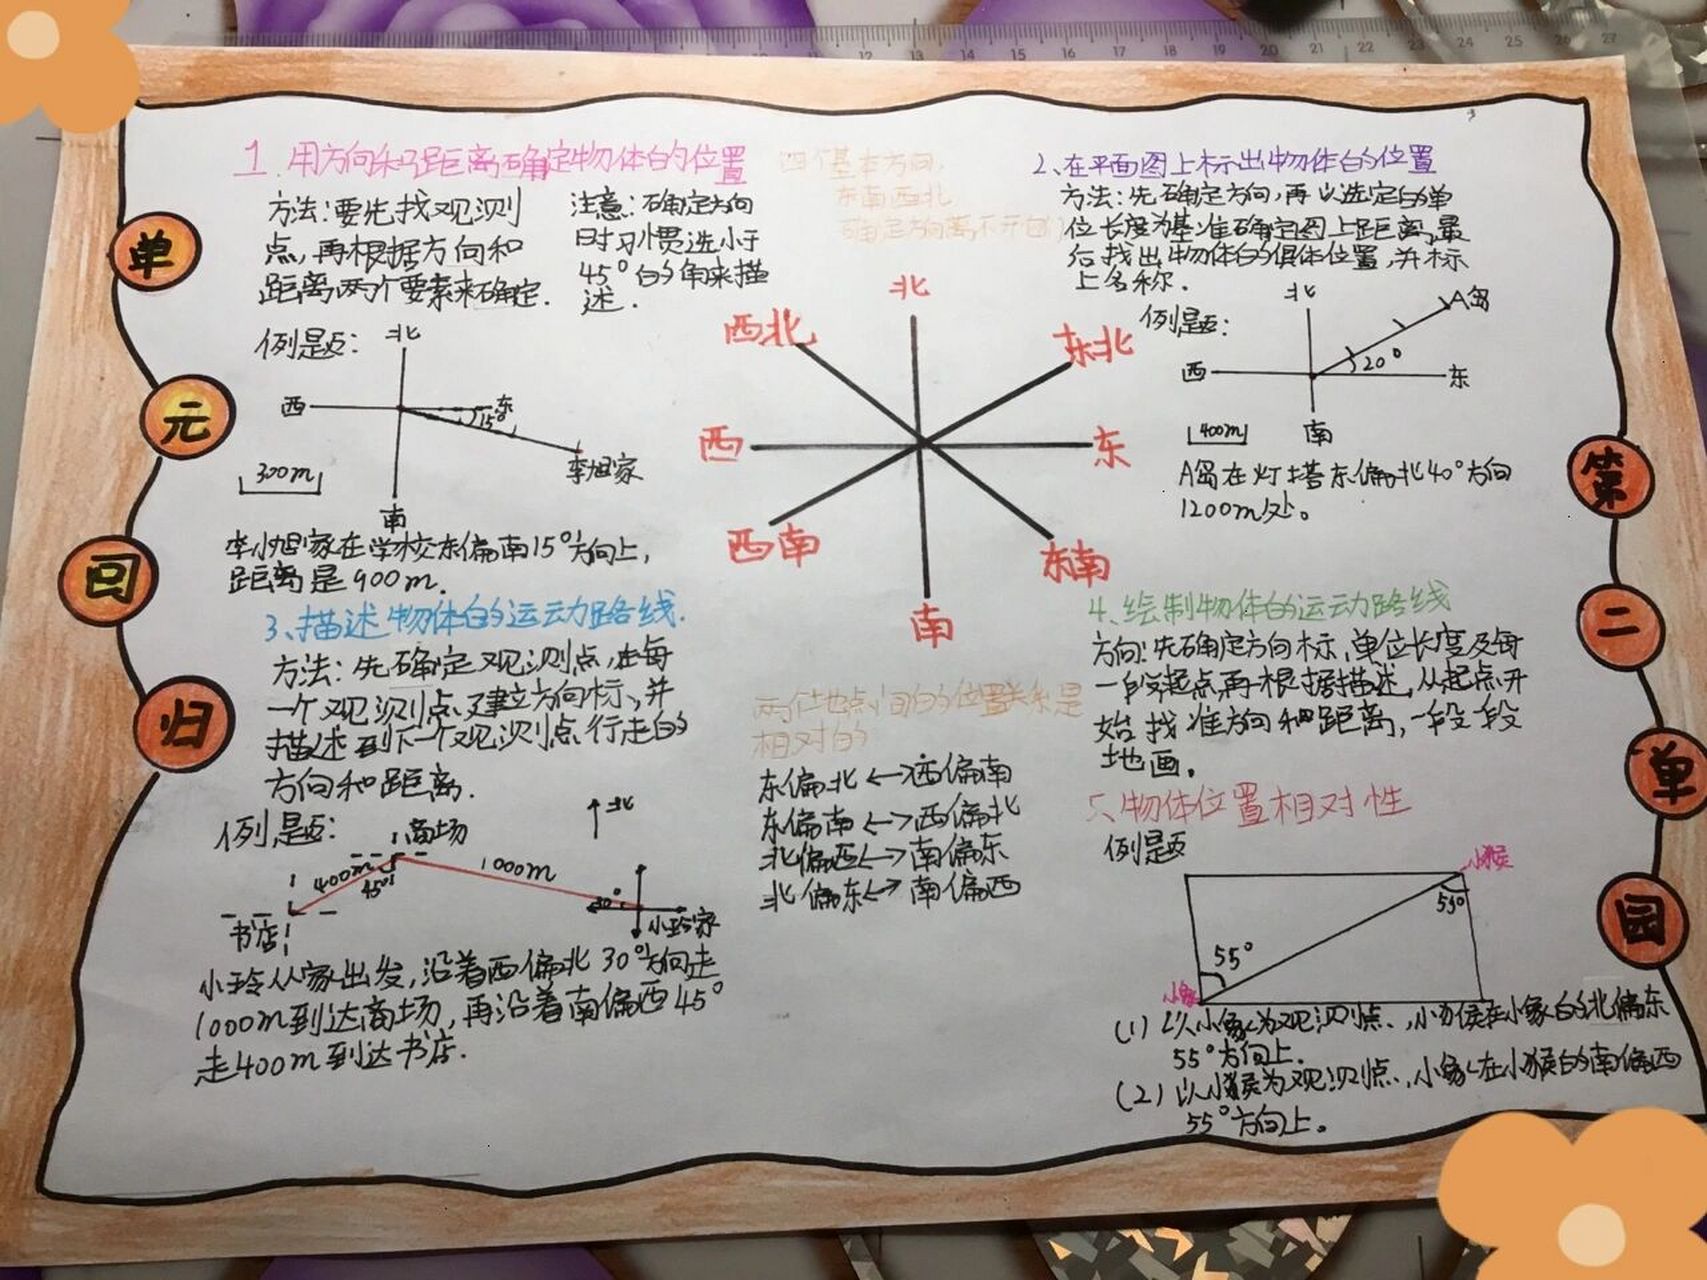 单元回归
第二单园
1. 用方向和距离确定物体的位置
方法:要先找观测
点,再根据方向和
距离两个要素来确定.
注意:确定方向
时习惯选小于
45°的角来描
述.
例题:
北
西
东
15°
300m
李旭家
南
李小旭家在学校东偏南15°方向上,
距离是900m.
四个基本方向,
东南西北
北
西北
东北
西
东
西南
东南
南
2、在平面图上标出物体的位置
方法:先确定方向,再以选定的单
位长度为基准确定图上距离,最
后找出物体的俱体位置,并标
上名称.
例题:
北
A岛
西
20°
东
400m
南
A岛在灯塔东偏北40°方向
1200m处。
3、描述物体的运动路线.
方法:先确定观测点,在每
一个观测点建立方向标,并
描述到下一个观测点行走的
方向和距离.
例题:
北
商场
400m
45°
1000m
30°
书店
小玲家
小玲从家出发,沿着西偏北30°方向走
1000m到达商场,再沿着南偏西45°
走400m到达书店.
两个地点间的位置关系是
相对的
东偏北←→西偏南
东偏南←→西偏北
北偏西←→南偏东
北偏东←→南偏西
4、绘制物体的运动路线
方向:先确定方向标,单位长度及每
一段起点,再根据描述,从起点开
始找准方向和距离,一段一段
地画.
5、物体位置相对性
例题
小猴
55°
55°
小象
(1)以小象为观测点,小猴在小象的北偏东
55°方向上.
(2)以小猴为观测点,小象在小猴的南偏西
55°方向上。